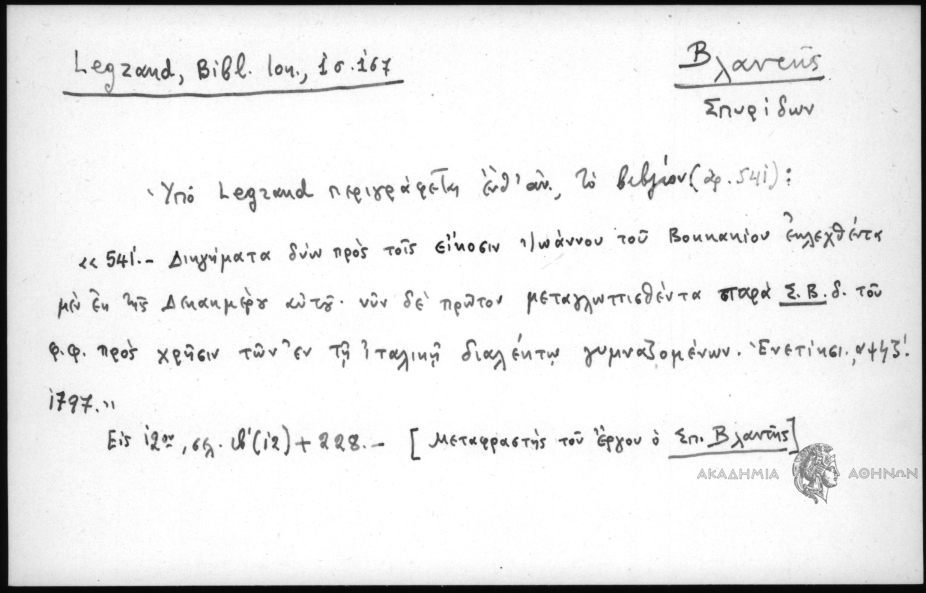 Legrand, Bibl. Ion., 1 σ. 167
Βλαντῆς
Σπυρίδων
Ὑπό Legrand περιγράφεται ἐνθ' ἀν., τὸ βιβλίον (ἀρ. 541):
«541.- Διηγήματα δύω πρὸς τοῖς εἴκοσιν Ἰωάννου τοῦ Βοκκακίου ἐκλεχθέντα
μὲν ἐκ τῆς Δεκαημέρου αὐτοῦ· νῦν δὲ πρῶτον μεταγλωττισθέντα παρά Σ. Β. δ. τοῦ
φ. φ. πρὸς χρῆσιν τῶν ἐν τῇ ἰταλικῇ διαλέκτῳ γυμναζομένων. Ἐνετίησι, αψϟζ΄.
1797.»
Εἰς 12ον, σελ. ιβ' (12) + 228.- [Μεταφραστής τοῦ ἔργου ὁ Σπ. Βλαντῆς]
ΑΚΑΔΗΜΙΑ ΑΘΗΝΩΝ